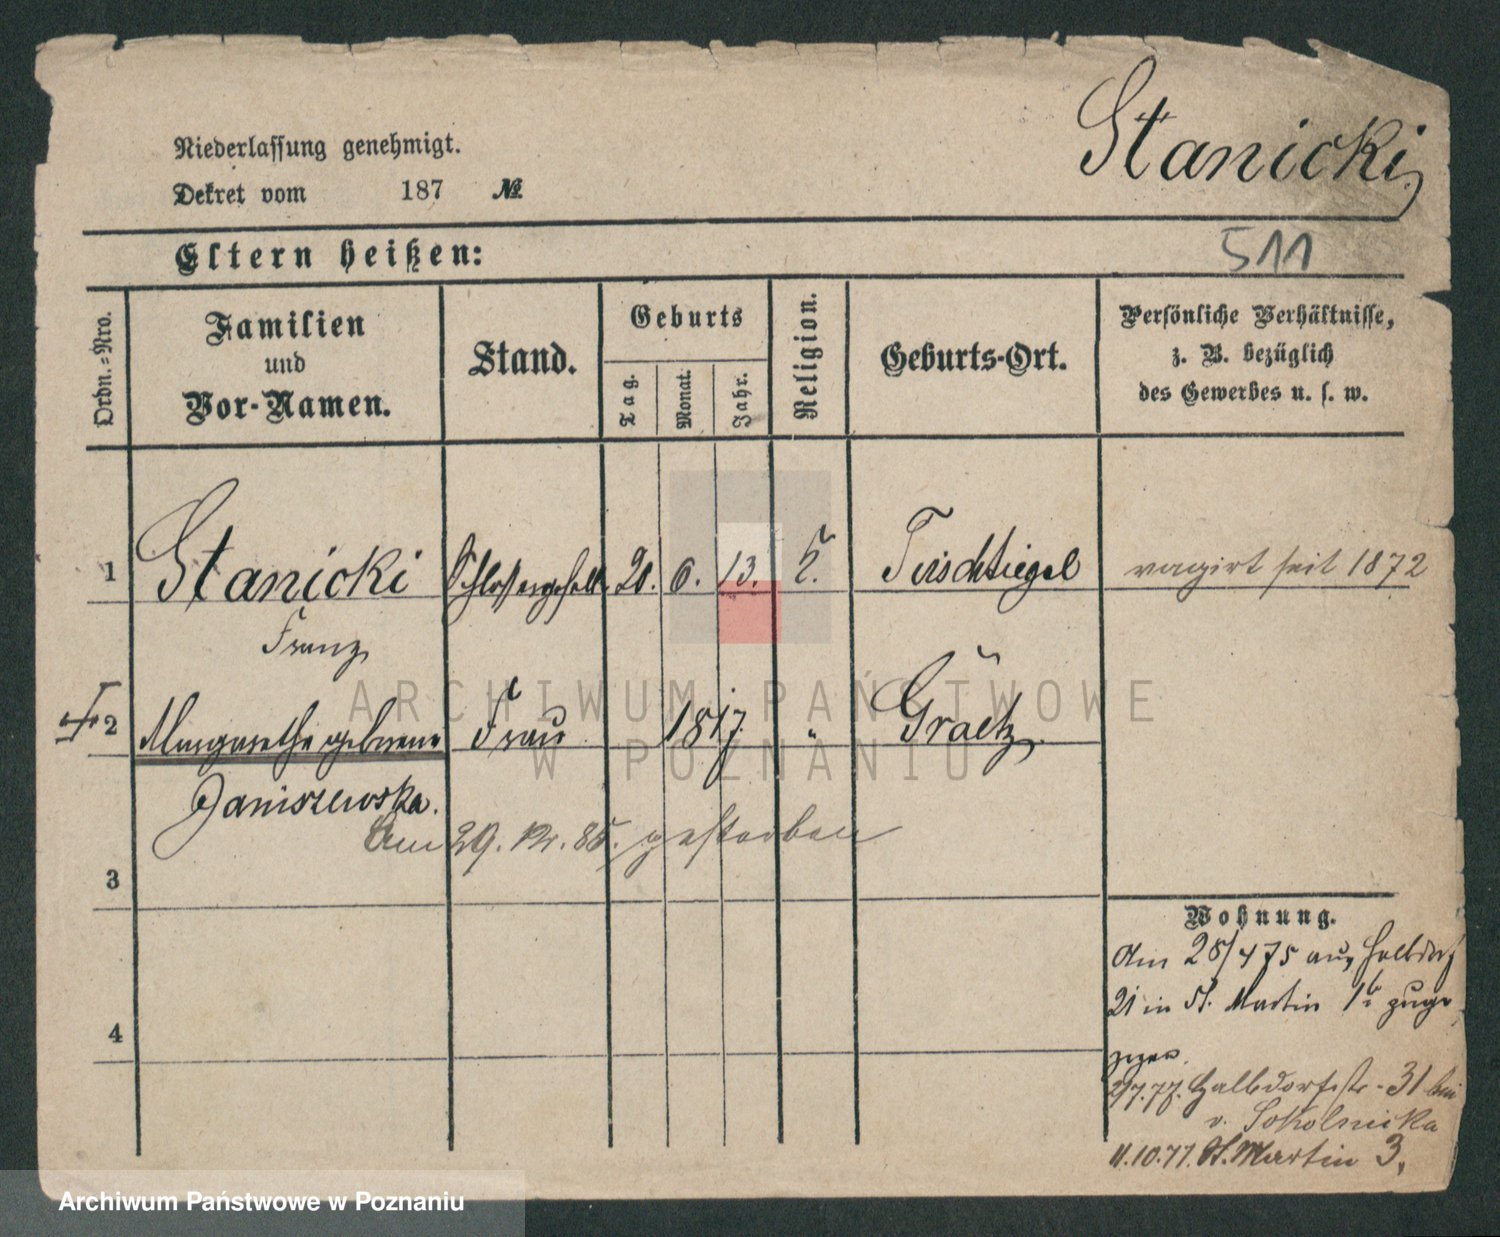 Stanicki
Niederlassung genehmigt.
Dekret vom 187 №
Eltern heißen:
511
Ordn.-Nro.
Familien
und
Vor-Namen.
Stand.
Geburts
Tag.
Monat.
Jahr.
Religion.
Geburts-Ort.
Persönliche Verhältnisse,
z. B. bezüglich
des Gewerbes u. s. w.
1 Stanicki Schlossergesell 6. 13. Tirschtiegel vagirt seit 1872
Franz
2 Margarethe geborene Frau 1817. " Graetz
Janiszewska.
Am 29. 85. gestorben
3
4
Wohnung.
Am 28/4 75 aus Halbdorf
21 in St. Martin zuge
zogen.
2/7.77. Halbdorfstr. 31 bei
v. Sokolnicka
11.10.77. St. Martin 3.
ARCHIWUM PAŃSTWOWE
W POZNANIU
Archiwum Państwowe w Poznaniu